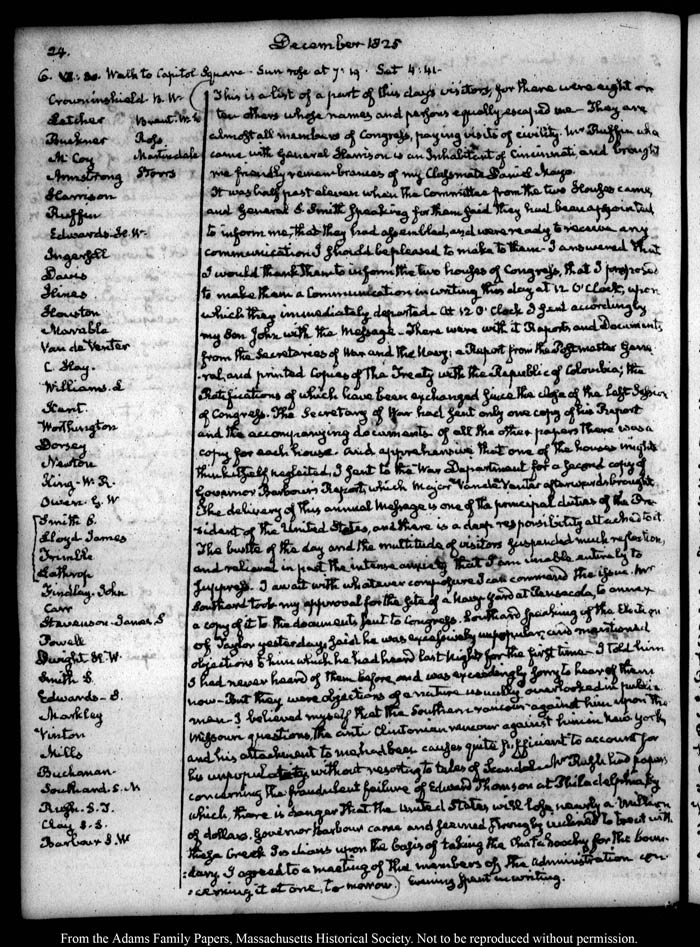 24.
December 1825
6. VI:30. Walk to Capitol Square. Sun rose at 7:19. Set 4:41.
Crowninshield B. W
Letcher Brent. W. L
Buckner Ross
McCoy Martindale
Armstrong Storrs
Harrison
Ruffin
Edwards. H. W.
Ingersoll
Davis
Hines
Houston
Marable
Van de Venter
C. Hay.
Williams. L
Kent.
Worthington
Dorsey
Newton
King. W. R.
Owen. G. W
Smith S.
Lloyd James
Trimble
Lathrop
Findlay. John
Carr
Stevenson. James. S
Powell
Dwight H. W.
Smith S.
Edwards. S.
Markley
Vinton
Mills
Buchanan
Southard. S. M
Rush. S. T.
Clay. S. S.
Barbour S. W
This is a list of a part of this day's visitors, for there were eight or
ten others whose names and persons equally escaped me. They are
almost all members of Congress, paying visits of civility. Mr Ruffin who
came with General Harrison is an Inhabitant of Cincinnati, and brought
me friendly remembrances of my Classmate Daniel Mayo.
It was half past eleven when the Committee from the two Houses came,
and General S. Smith speaking for them said they had been appointed
to inform me, that they had assembled, and were ready to receive any
communication I should be pleased to make to them. I answered that
I would thank them to inform the two houses of Congress, that I proposed
to make them a Communication in writing this day at 12 O'Clock, upon
which they immediately departed. At 12 O'Clock I sent accordingly
my Son John with the Message. There were with it Reports and Documents
from the Secretaries of War and the Navy; a Report from the Postmaster Gene
ral, and printed Copies of the Treaty with the Republic of Colombia; the
Ratifications of which have been exchanged since the close of the last Session
of Congress. The Secretary of War had sent only one copy of his Report
and the accompanying documents. of all the other papers there was a
copy for each house. And apprehensive that one of the houses might
think itself neglected, I sent to the War Department for a second copy of
Governor Barbour's Report, which Major Van de Venter afterwards brought.
The delivery of this annual Message is one of the principal duties of the Pre-
sident of the United States, and there is a deep responsibility attached to it
The bustle of the day and the multitude of visitors suspended much reflection,
and relieved in part the intense anxiety that I am unable entirely to
suppress. I await with whatever composure I can command the issue. Mr
Southard took my approval for the site of a Navy Yard at Pensacola, to annex
a copy of it to the documents sent to Congress. Southard speaking of the Election
of Taylor yesterday, said he was excessively unpopular, and mentioned
objections to him which he had heard last Night for the first time. I told him
I had never heard of them before, and was exceedingly sorry to hear of them
now. But they were objections of a nature usually overlooked in public
men. I believed myself that the Southern rancour against him upon the
Missouri questions, the anti Clintonian rancour against him in New York,
and his attachment to me, had been causes quite sufficient to account for
his unpopularity, without resorting to tales of Scandal. Mr Rush had papers
concerning the fraudulent failure of Edward Thomson at Philadelphia, by
which there is danger that the United States will lose nearly a Million
of dollars. Governor Barbour came and seemed strongly inclined to treat with
these Creek Indians upon the basis of taking the Chatahoochy for the boun-
dary. I agreed to a meeting of the members of the administration con-
cerning it at one, to morrow. Evening spent in writing.
From the Adams Family Papers, Massachusetts Historical Society. Not to be reproduced without permission.